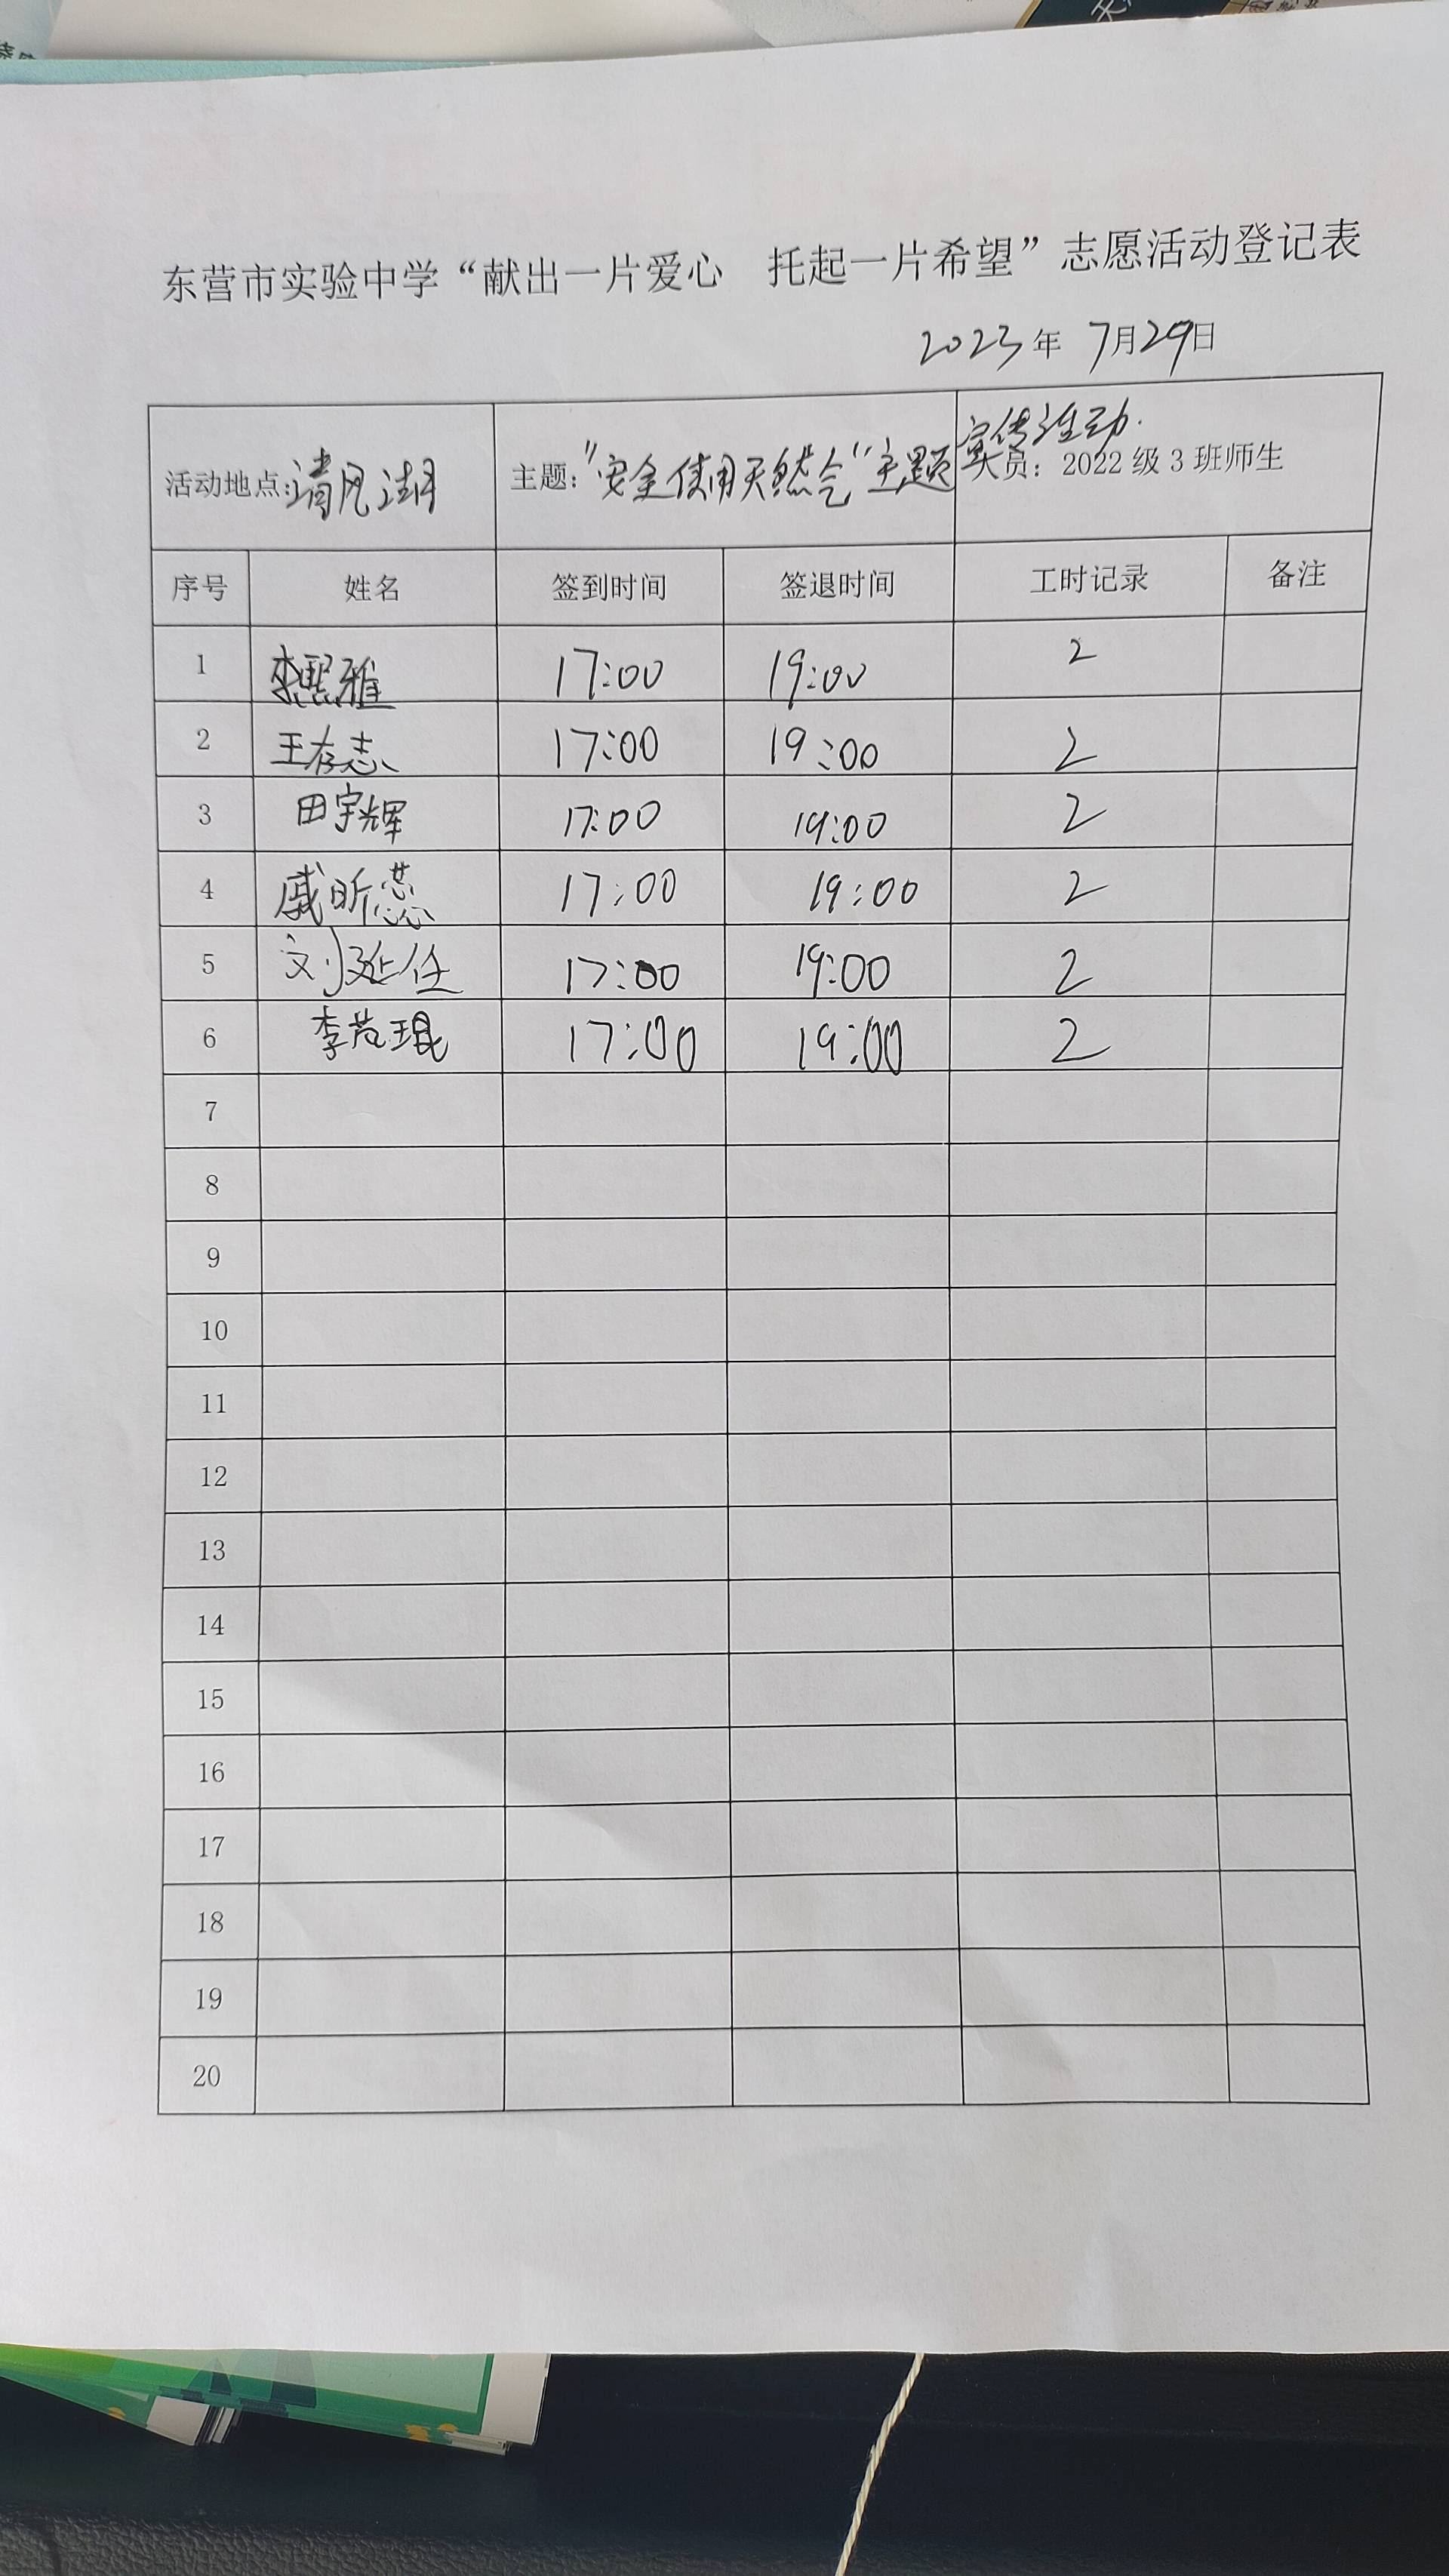 东营市实验中学“献出一片爱心 托起一片希望”志愿活动登记表
2023年 7月29日
活动地点:清风湖 主题:“安全使用天然气”主题宣传活动. 人员:2022级3班师生
序号 姓名 签到时间 签退时间 工时记录 备注
1 李熙雅 17:00 19:00 2
2 王存志 17:00 19:00 2
3 田宇辉 17:00 19:00 2
4 戚昕蕊 17:00 19:00 2
5 刘延任 17:00 19:00 2
6 李芃琨 17:00 19:00 2
7
8
9
10
11
12
13
14
15
16
17
18
19
20